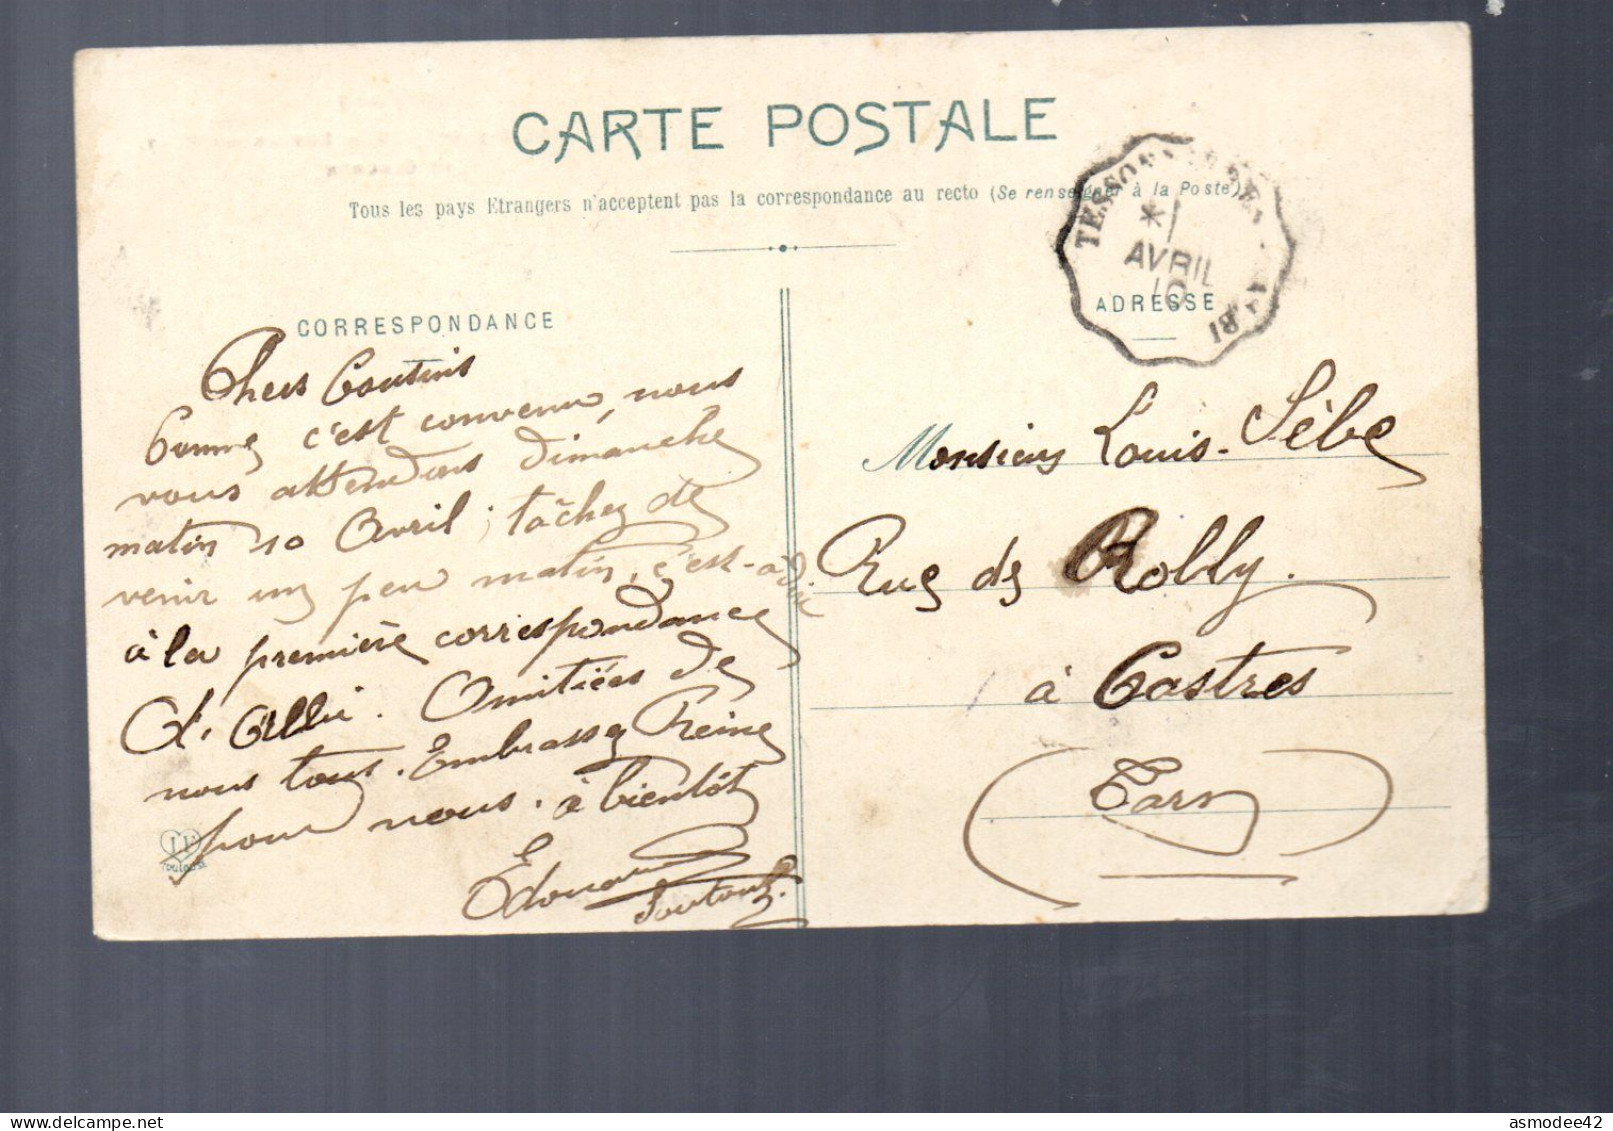 CARTE POSTALE
Tous les pays Etrangers n'acceptent pas la correspondance au recto (Se renseigner à la Poste)
CORRESPONDANCE
Chers Coutins
Comme c'est convenu, nous
vous attendons dimanche
matin 10 Avril ; tâchez de
venir un peu matin, c'est-à-dire
à la première correspondance
d'Albi. Amitiées de
nous tous. Embrassez Reine
pour nous. à bientôt
Edouard
ADRESSE
AVRIL
10
Monsieur Louis Sèbe
Rue de Rolly.
à Castres
(Tarn)
TOULOUSE
asmodee42